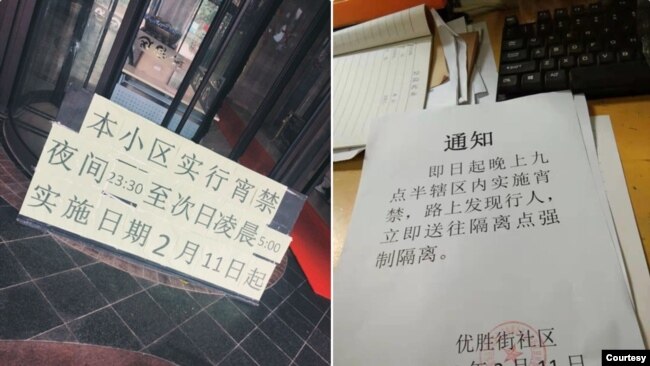 本小区实行宵禁
夜间23:30至次日凌晨5:00
实施日期2月11日起
通知
即日起晚上九
点半辖区内实施宵
禁，路上发现行人，
立即送往隔离点强
制隔离。
优胜街社区
年2月11日
Courtesy